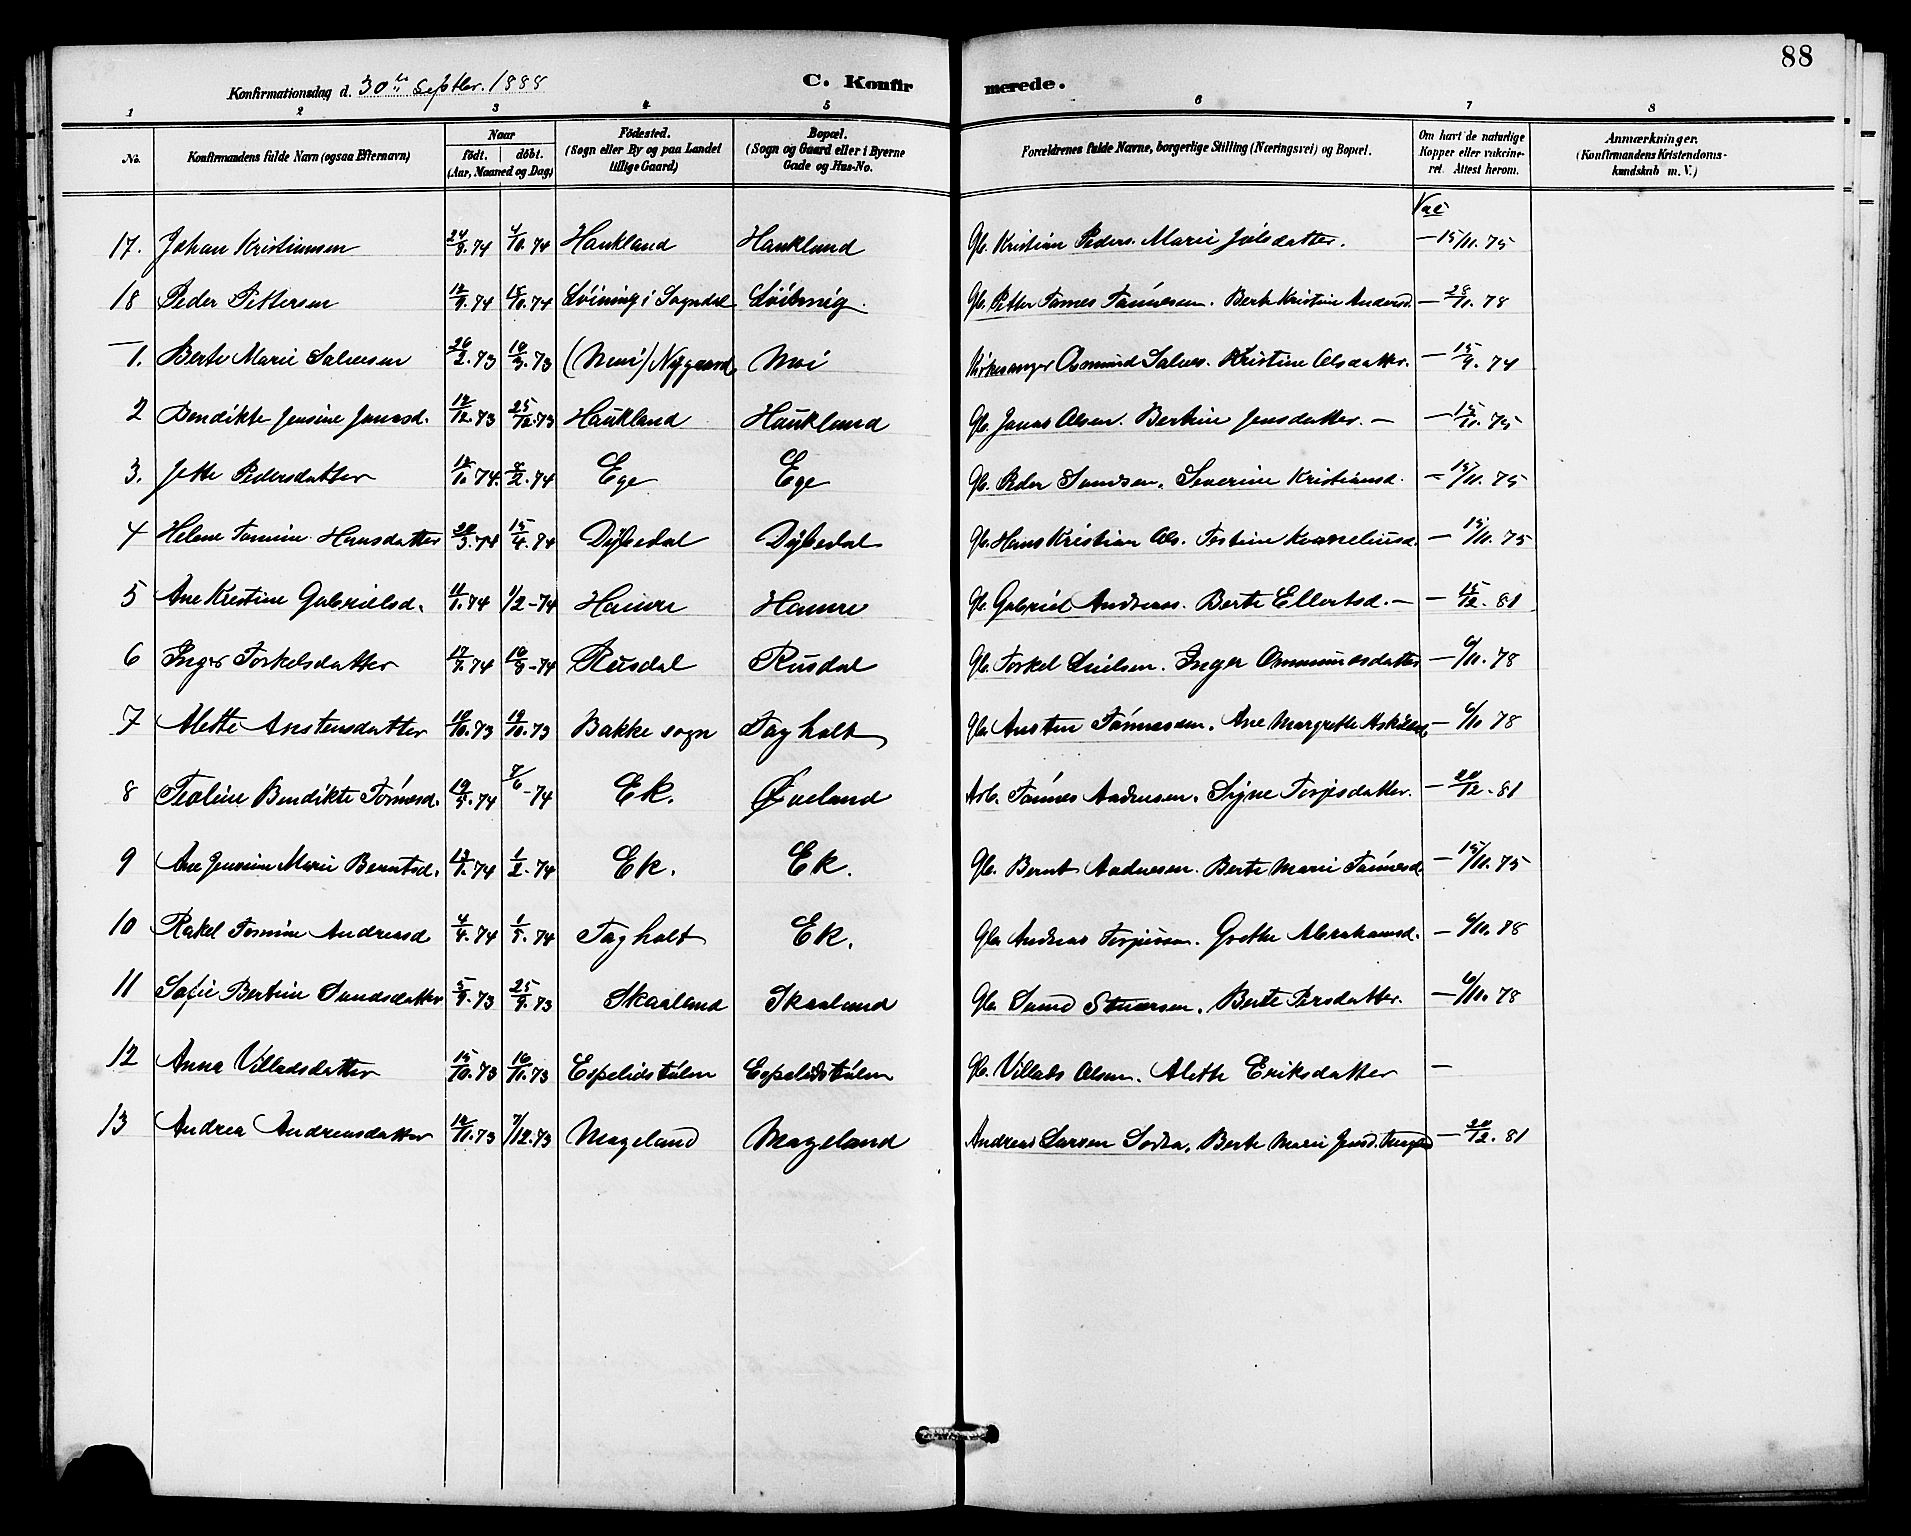 88
Konfirmationsdag d. 30te Septbr. 1888
C. Konfirmerede.
1 2 3 4 5 6 7 8
No. Konfirmandens fulde Navn (ogsaa Efternavn) Naar født. døbt. (Aar, Maaned og Dag) Fødested. (Sogn eller By og paa Landet tillige Gaard) Bopæl. (Sogn og Gaard eller i Byerne Gade og Hus-No. Forældrenes fulde Navne, borgerlige Stilling (Næringsvei) og Bopæl. Om havt de naturlige Kopper eller vakcineret. Attest herom. Anmærkninger. (Konfirmandens Kristendomskundskab m. V.)
Vac
17. Johan Kristiansen 24/8.74 4/10.74 Haukland Haukland Gb. Kristian Peders. Marie Joelsdatter. — 15/11.75
18 Peder Pettersen 12/9.74 18/10.74 Løining i Sogndal Gb. Petter Tønnesen. Berte Kristine Andersd. — 28/11.78
1. Berte Marie Salvesen 26/2.73 16/3.73 (Moi) Nygaard Moi Kirkesanger Osmund Salves. Kristine Olsdatter. — 15/9.74
2 Bendikte Jensine Jonasd. 12/12.73 25/12.73 Haukland Haukland Gb. Jonas Olsen. Bertine Jensdatter. — — 15/11.75
3. Jette Pedersdatter 12/1.74. 8/2.74 Ege Ege Gb. Peder Svendsen. Severine Kristiansd. — 15/11.75
4 Helene Tomine Hansdatter 20/3.74 15/4.74 Dybedal Dybedal Gb. Hans Kristian Ols. Tostine Korneliusd. — 15/11.75
5 Ane Kristine Gabrielsd. 11/1.74 1/2-74 Hamre Hamre Gb. Gabriel Andreas. Berte Ellertsd. — — 15/12.81
6 Inger Torkelsdatter 17/7.74 16/9-74 Rusdal Rusdal Gb. Torkel Inger Osmundsdatter — 6/11.78
7 Mette Anstensdatter 10/10.73 19/10.73 Bakke sogn Tagholt Gb. Ansten Tønnesden. Ane Margrethe — 6/11.78
8 Tealine Bendikte Tønnesd. 19/5.74 7/6-74 Ek. Øveland Arb. Tønnes Andresen. Signe Torjesdatter. — 20/12.81
9 Ane Jensine Marie Berntsd. 13/1.74 1/2.74 Ek. Ek. Gb. Bernt Andresen. Berte Marie Tønnesd. — 15/11.75
10 Rakel Tomine Andreasd 4/4.74 1/5.74 Tagholt Ek. Gb. Andreas Torjesen. Grethe Abrahamsd. — 6/11.78
11 Sofie Bertine Svendsdatter 5/9.73 25/9.73 Skaaland Skaaland Gb. Svend Berte Persdatter. — 6/11.78
12 Anna Villadsdatter 15/10.73 16/11.73 Espelidstølen Espelidstølen Gb. Villads Olsen. Alette Eriksdatter —
13 Andrea Andreasdatter 12/11.73 7/12.73 Mageland Mageland Andreas Larsen Berte Marie Jensd. — 20/12.81